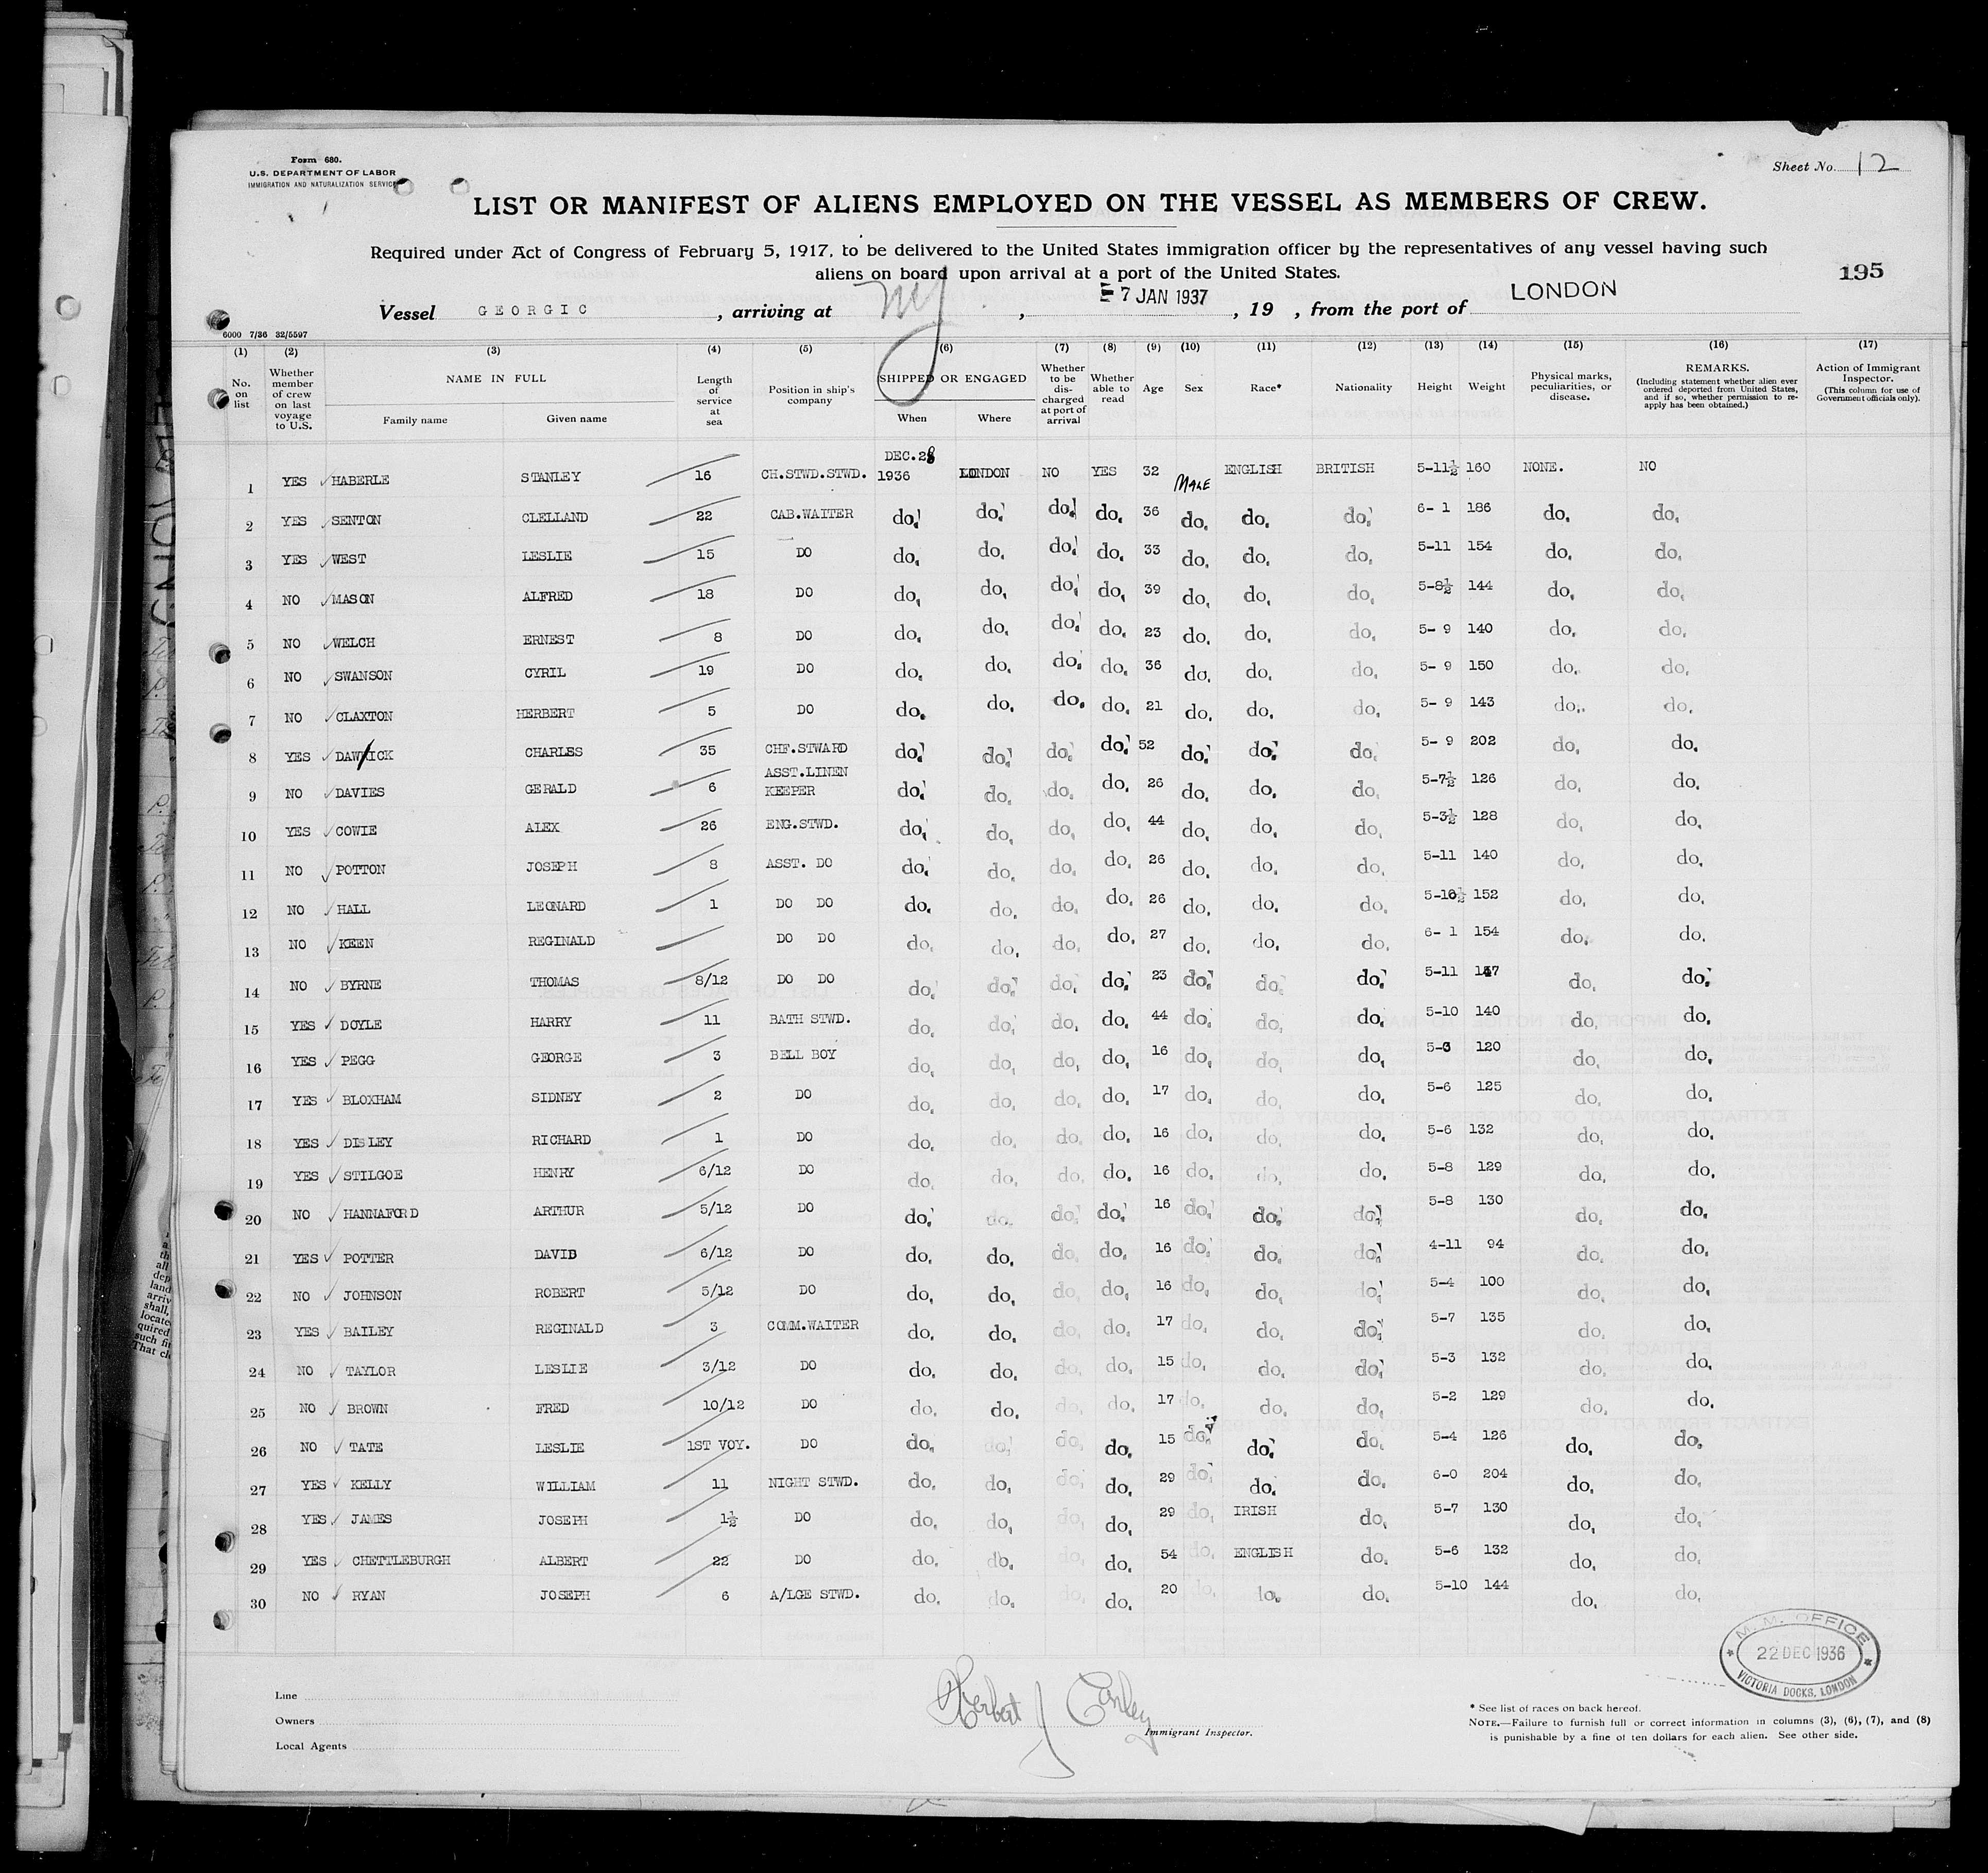 Form 680.
U.S. DEPARTMENT OF LABOR
IMMIGRATION AND NATURALIZATION SERVICE
Sheet No. 12
LIST OR MANIFEST OF ALIENS EMPLOYED ON THE VESSEL AS MEMBERS OF CREW.
Required under Act of Congress of February 5, 1917, to be delivered to the United States immigration officer by the representatives of any vessel having such
aliens on board upon arrival at a port of the United States.
195
Vessel GEORGIC, arriving at NY, 7 JAN 1937, 19 , from the port of LONDON
6000 7/36 32/5597
(1) (2) (3) (4) (5) (6) (7) (8) (9) (10) (11) (12) (13) (14) (15) (16) (17)
No. on list
Whether member of crew on last voyage to U.S.
NAME IN FULL
Family name Given name
Length of service at sea
Position in ship's company
SHIPPED OR ENGAGED
When Where
Whether to be discharged at port of arrival
Whether able to read
Age
Sex
Race*
Nationality
Height
Weight
Physical marks, peculiarities, or disease.
REMARKS.
(Including statement whether alien ever ordered deported from United States, and if so, whether permission to re-apply has been obtained.)
Action of Immigrant Inspector.
(This column for use of Government officials only).
1 YES HABERLE STANLEY 16 CH.STWD.STWD. DEC.28 1936 LONDON NO YES 32 MALE ENGLISH BRITISH 5-11½ 160 NONE. NO
2 YES SENTON CLELLAND 22 CAB.WAITER do. do. do. do. 36 do. do. do. 6- 1 186 do. do.
3 YES WEST LESLIE 15 DO do. do. do. do. 33 do. do. do. 5-11 154 do. do.
4 NO MASON ALFRED 18 DO do. do. do. do. 39 do. do. do. 5-8½ 144 do. do.
5 NO WELCH ERNEST 8 DO do. do. do. do. 23 do. do. do. 5- 9 140 do. do.
6 NO SWANSON CYRIL 19 DO do. do. do. do. 36 do. do. do. 5- 9 150 do. do.
7 NO CLAXTON HERBERT 5 DO do. do. do. do. 21 do. do. do. 5- 9 143 do. do.
8 YES DAWICK CHARLES 35 CHF.STWARD do. do. do. do. 52 do. do. do. 5- 9 202 do. do.
9 NO DAVIES GERALD 6 ASST.LINEN KEEPER do. do. do. do. 26 do. do. do. 5-7½ 126 do. do.
10 YES COWIE ALEX 26 ENG.STWD. do. do. do. do. 44 do. do. do. 5-3½ 128 do. do.
11 NO POTTON JOSEPH 8 ASST. DO do. do. do. do. 26 do. do. do. 5-11 140 do. do.
12 NO HALL LEONARD 1 DO DO do. do. do. do. 26 do. do. do. 5-10½ 152 do. do.
13 NO KEEN REGINALD DO DO do. do. do. do. 27 do. do. do. 6- 1 154 do. do.
14 NO BYRNE THOMAS 8/12 DO DO do. do. do. do. 23 do. do. do. 5-11 147 do. do.
15 YES DOYLE HARRY 11 BATH STWD. do. do. do. do. 44 do. do. do. 5-10 140 do. do.
16 YES PEGG GEORGE 3 BELL BOY do. do. do. do. 16 do. do. do. 5-3 120 do. do.
17 YES BLOXHAM SIDNEY 2 DO do. do. do. do. 17 do. do. do. 5-6 125 do. do.
18 YES DISLEY RICHARD 1 DO do. do. do. do. 16 do. do. do. 5-6 132 do. do.
19 YES STILGOE HENRY 6/12 DO do. do. do. do. 16 do. do. do. 5-8 129 do. do.
20 NO HANNAFORD ARTHUR 5/12 DO do. do. do. do. 16 do. do. do. 5-8 130 do. do.
21 YES POTTER DAVID 6/12 DO do. do. do. do. 16 do. do. do. 4-11 94 do. do.
22 NO JOHNSON ROBERT 5/12 DO do. do. do. do. 16 do. do. do. 5-4 100 do. do.
23 YES BAILEY REGINALD 3 COMM.WAITER do. do. do. do. 17 do. do. do. 5-7 135 do. do.
24 NO TAYLOR LESLIE 3/12 DO do. do. do. do. 15 do. do. do. 5-3 132 do. do.
25 NO BROWN FRED 10/12 DO do. do. do. do. 17 do. do. do. 5-2 129 do. do.
26 NO TATE LESLIE 1ST VOY. DO do. do. do. do. 15 do. do. do. 5-4 126 do. do.
27 YES KELLY WILLIAM 11 NIGHT STWD. do. do. do. do. 29 do. do. do. 6-0 204 do. do.
28 YES JAMES JOSEPH 1½ DO do. do. do. do. 29 do. IRISH do. 5-7 130 do. do.
29 YES CHETTLEBURGH ALBERT 22 DO do. do. do. do. 54 do. ENGLISH do. 5-6 132 do. do.
30 NO RYAN JOSEPH 6 A/LGE STWD. do. do. do. do. 20 do. do. do. 5-10 144 do. do.
M.M. OFFICE
22 DEC 1936
VICTORIA DOCKS, LONDON
Line
Owners
Local Agents
Herbert J Conley
Immigrant Inspector.
* See list of races on back hereof.
NOTE.—Failure to furnish full or correct information in columns (3), (6), (7), and (8)
is punishable by a fine of ten dollars for each alien. See other side.